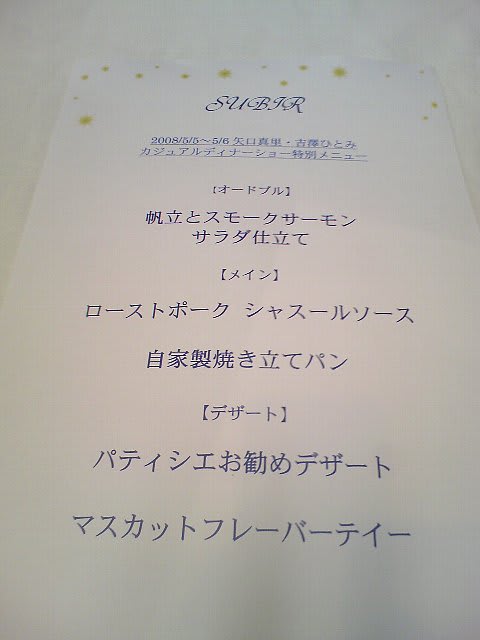 SUBIR
2008/5/5～5/6 矢口真里・吉澤ひとみ
カジュアルディナーショー特別メニュー
【オードブル】
帆立とスモークサーモン
サラダ仕立て
【メイン】
ローストポーク シャスールソース
自家製焼き立てパン
【デザート】
パティシエお勧めデザート
マスカットフレーバーテイー